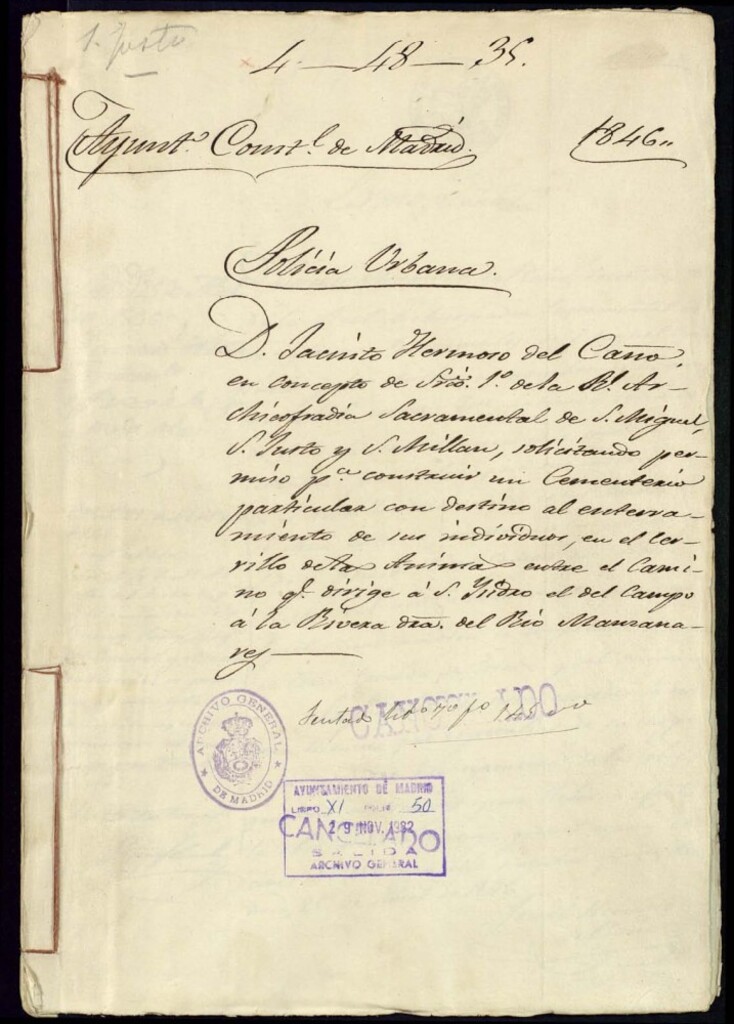 S. Justo
4 — 48 — 35.
Ayunt.º Const.l de Madrid.
1846„
Policia Urbana.
D. Jacinto Hermoso del Caño,
en concepto de Srio. 1.º de la Rl. Ar-
chicofradia Sacramental de S. Miguel,
S. Justo y S. Millan, solicitando per-
miso p.a construir un Cementerio
particular con destino al enterra-
miento de sus individuos, en el Cer-
rillo de las Animas entre el Cami-
no q.e dirige á S. Ysidro el del Campo
á la Rivera dra. del Rio Manzana-
res —
CANCELADO
Sentado
ARCHIVO GENERAL
★ DE MADRID ★
AYUNTAMIENTO DE MADRID
LIBRO XI FOLIO 50
29 NOV. 1982
CANCELADO
SALIDA
ARCHIVO GENERAL